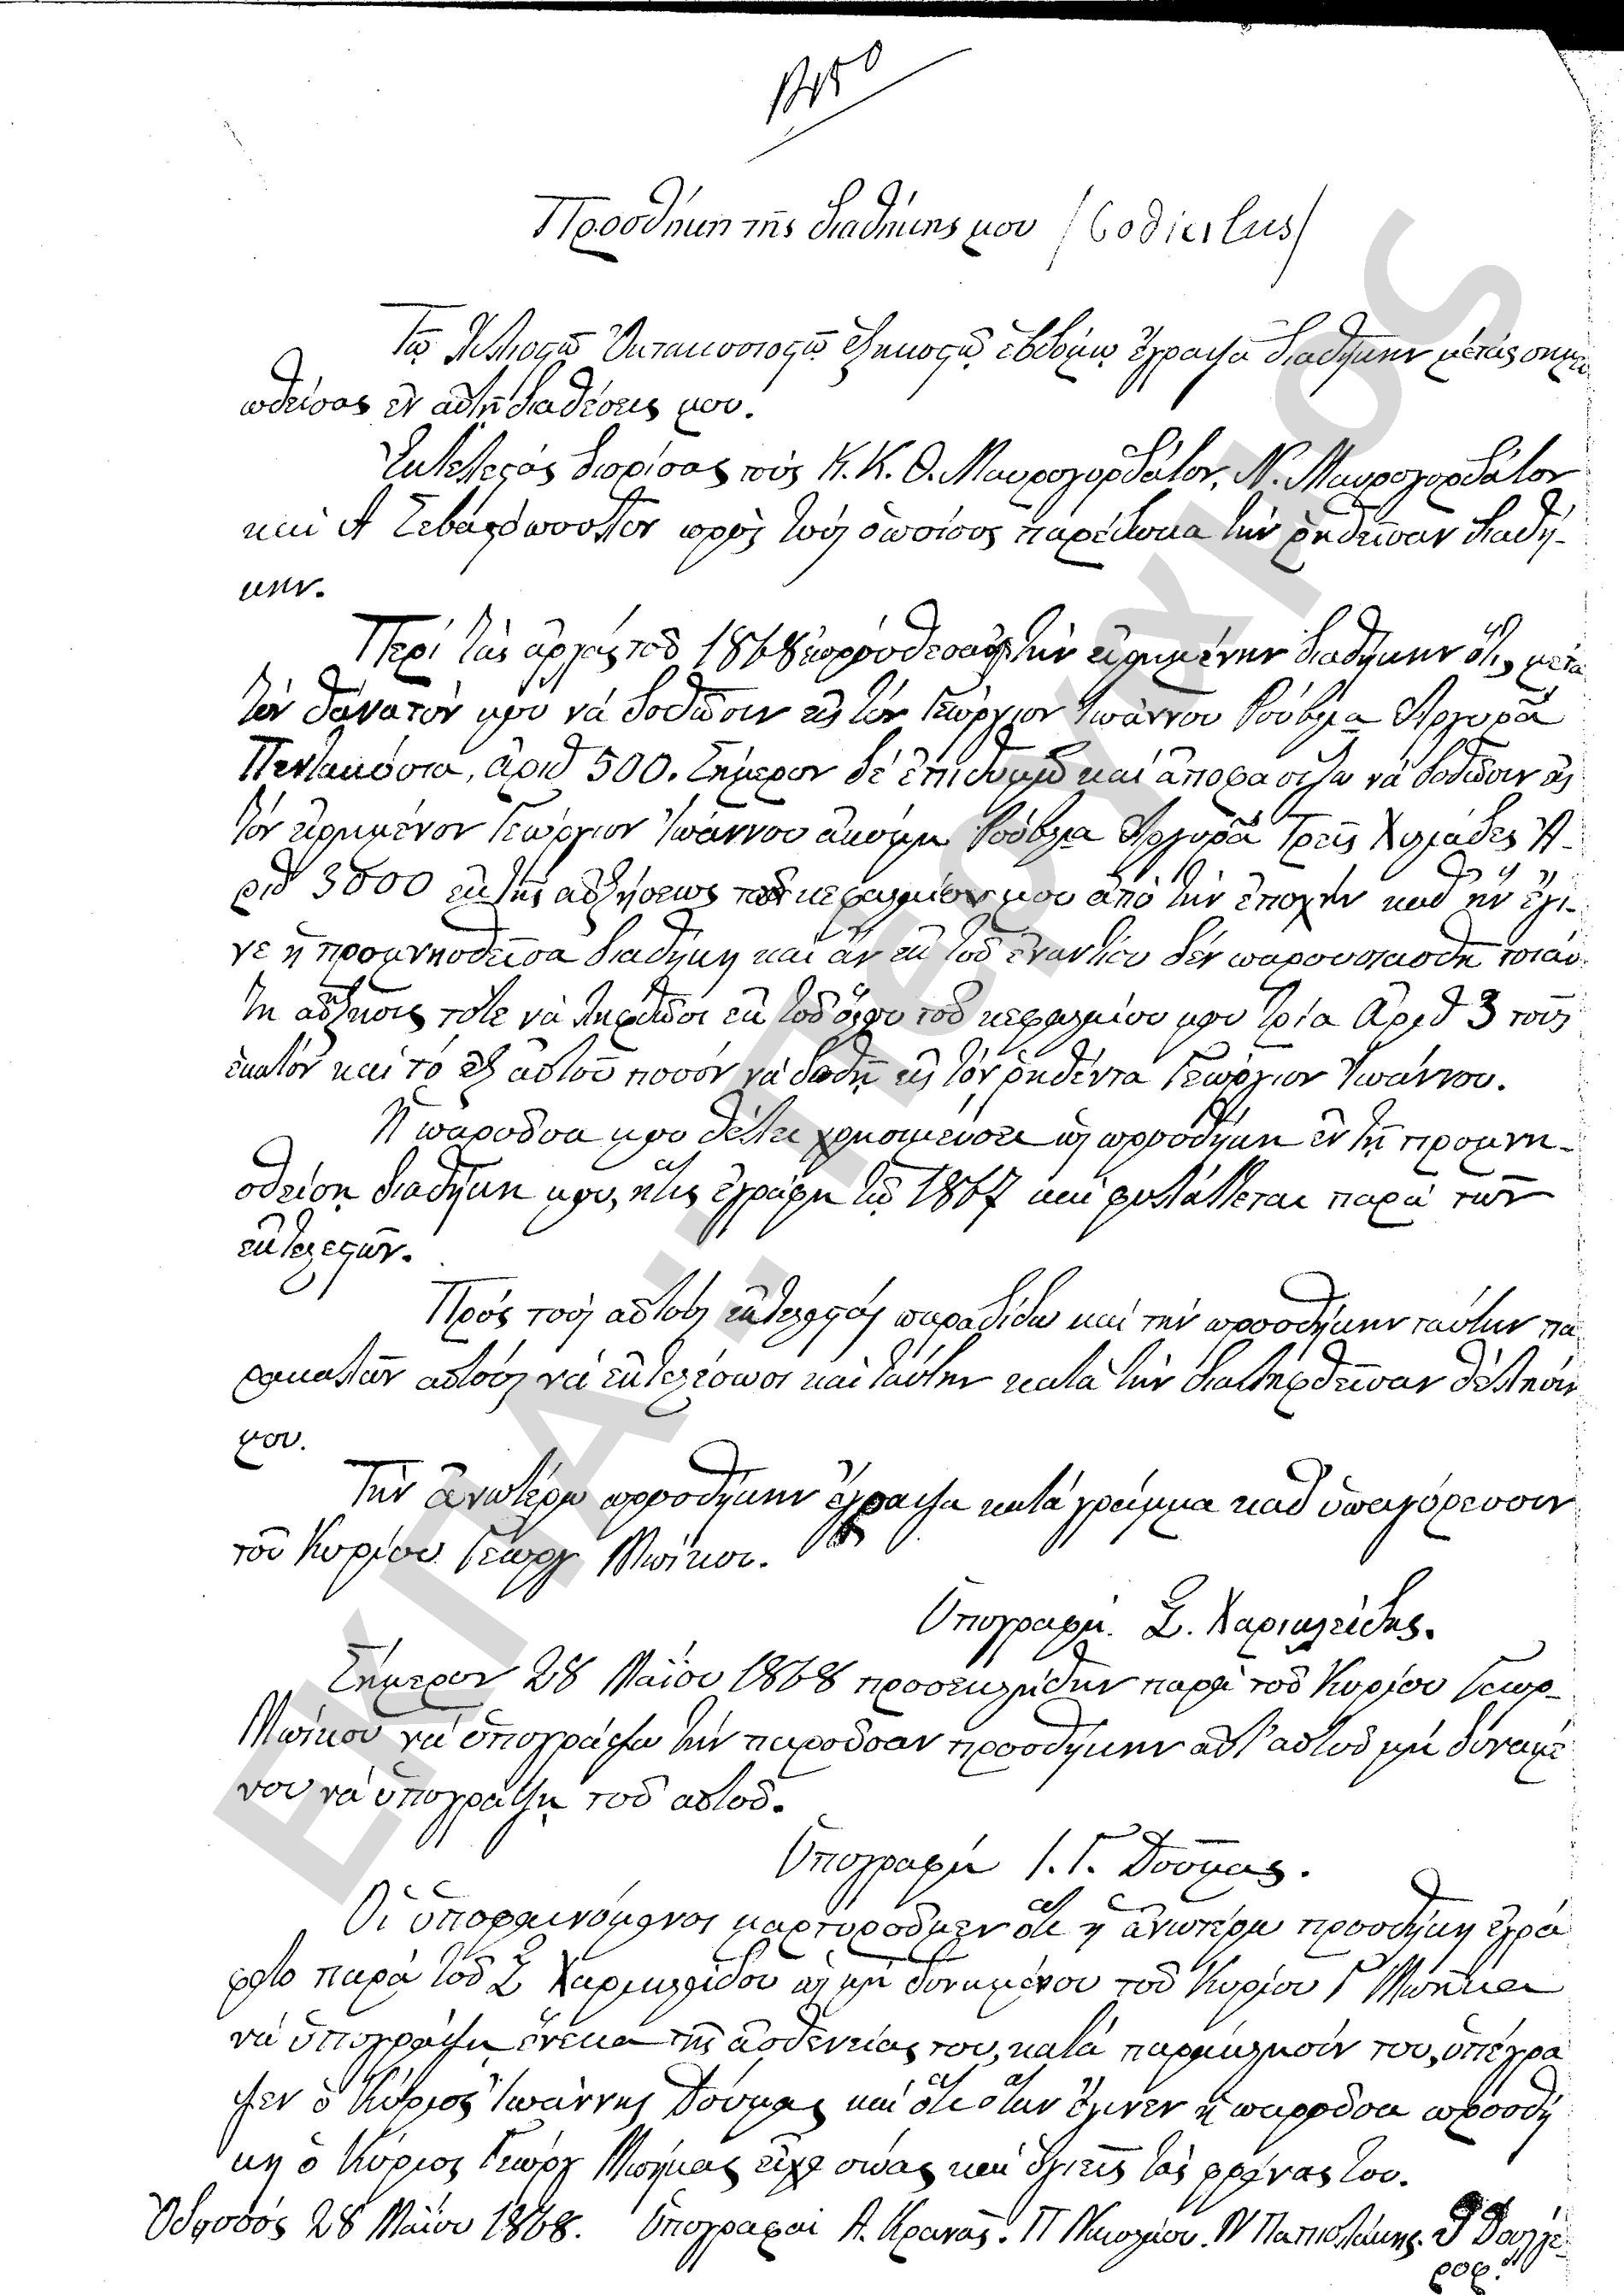 Προσθήκη τῆς διαθήκης μου (Codicilus)
Τῷ Χιλιοστῷ Ὀκτακοσιοστῷ ἑξηκοστῷ ἑβδόμῳ ἔγραψα διαθήκην μὲ τὰς σημει
ωθείσας ἐν αὐτῇ διαθέσεις μου.
Ἐκτελεστὰς διορίσας τοὺς Κ. Κ. Θ. Μαυρογορδάτον, Ν. Μαυρογορδάτον
καὶ Α Σεβαστόπουλον πρὸς τοὺς ὁποίους παρέδωκα τὴν ῥηθεῖσαν διαθή-
κην.
Περὶ τὰς ἀρχὰς τοῦ 1868 ἐπρόσθεσα εἰς τὴν εἰρημένην διαθήκην ὅτι μετὰ
τὸν θάνατόν μου νὰ δοθῶσιν εἰς τὸν Γεώργιον Ἰωάννου Ρούβλια Ἀργυρᾶ
Πεντακόσια, ἀριθ 500. Σήμερον δὲ ἐπιθυμῶ καὶ ἀποφασίζω νὰ δοθῶσιν εἰς
τὸν εἰρημένον Γεώργιον Ἰωάννου ἀκόμη Ρούβλια Ἀργυρᾶ Τρεῖς Χιλιάδες Ἀ-
ριθ 3000 ἐκ τῆς αὐξήσεως τοῦ κεφαλαίου μου ἀπὸ τὴν ἐποχὴν καθ ἣν ἔγι-
νε ἡ προμνησθεῖσα διαθήκη καὶ ἂν ἐκ τοῦ ἐναντίου δὲν παρουσιασθῇ τοιαύ
τη αὔξησις τότε νὰ ληφθῶσι ἐκ τοῦ ὅλου τοῦ κεφαλαίου μου τρία Ἀριθ 3 τοῖς
ἑκατὸν καὶ τὸ ἐξ αὐτοῦ ποσὸν νὰ δοθῇ εἰς τὸν ῥηθέντα Γεώργιον Ἰωάννου.
Ἡ παροῦσα μου θέλει χρησιμεύσει ὡς προσθήκη ἐν τῇ προμνη-
σθείσῃ διαθήκῃ μου, ἥτις ἐγράφη τῷ 1867 καὶ φυλάττεται παρὰ τῶν
ἐκτελεστῶν.
Πρὸς τοὺς αὐτοὺς ἐκτελεστὰς παραδίδω καὶ τὴν προσθήκην ταύτην πα
ρακαλῶν αὐτοὺς νὰ ἐκτελέσωσι καὶ ταύτην κατὰ τὴν διαληφθεῖσαν θέλησίν
μου.
Τὴν ἀνωτέρω προσθήκην ἔγραψα κατὰ γράμμα καθ ὑπαγόρευσιν
τοῦ Κυρίου Γεωργ Μπίκου.
Ὑπογραφὴ. Σ. Χαρικλείδης.
Σήμερον 28 Μαΐου 1868 προσεκλήθην παρὰ τοῦ Κυρίου Γεωρ-
Μπίκου νὰ ὑπογράψω τὴν παροῦσαν προσθήκην ἀντ' αὐτοῦ μὴ δυναμέ
νου νὰ ὑπογράψῃ τοῦ αὐτοῦ.
Ὑπογραφὴ Ι. Γ. Δούμας.
Οἱ ὑποφαινόμενοι μαρτυροῦμεν ὅτι ἡ ἀνωτέρω προσθήκη ἐγρά
φετο παρὰ τοῦ Σ Χαρικλείδου ὡς μὴ δυναμένου τοῦ Κυρίου Γ Μπῆκα
νὰ ὑπογράψῃ ἕνεκα τῆς ἀσθενείας του, κατὰ παράκλησίν του, ὑπέγρα
ψεν ὁ Κύριος Ἰωάννης Δούμας καὶ ὅτι ὅταν ἔγινεν ἡ παροῦσα προσθή
κη ὁ Κύριος Γεώργ Μπήκας εἶχε σώας καὶ ὑγιεῖς τὰς φρένας του.
Ὀδησσὸς 28 Μαΐου 1868. Ὑπογραφαὶ Α. Κρανᾶς. Π Νικολάου. Ν
ΕΚΠΑ: ΠΕΡΓΑΜΟΣ